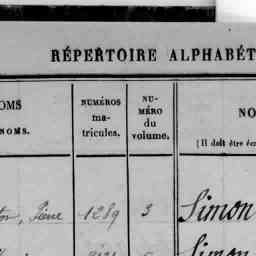 RÉPERTOIRE ALPHABÉT
OMS
NOMS.
NUMÉROS
ma-
tricules.
NU-
MÉRO
du
volume.
NO
(Il doit être éc
Pierre 1289 3 Simon
Simon